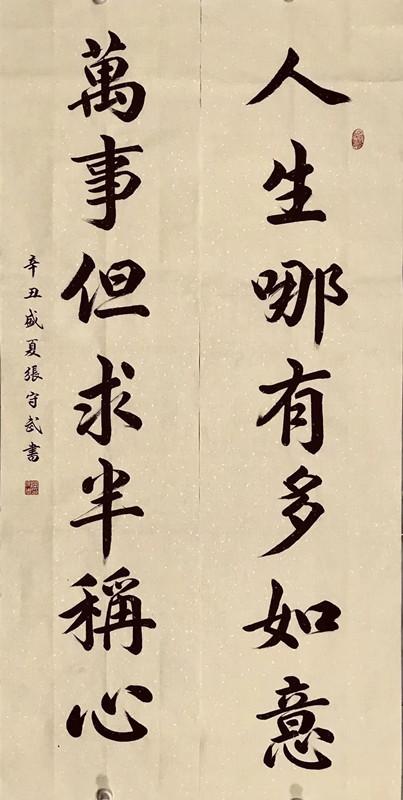 人生哪有多如意
萬事但求半稱心
辛丑盛夏張守武書